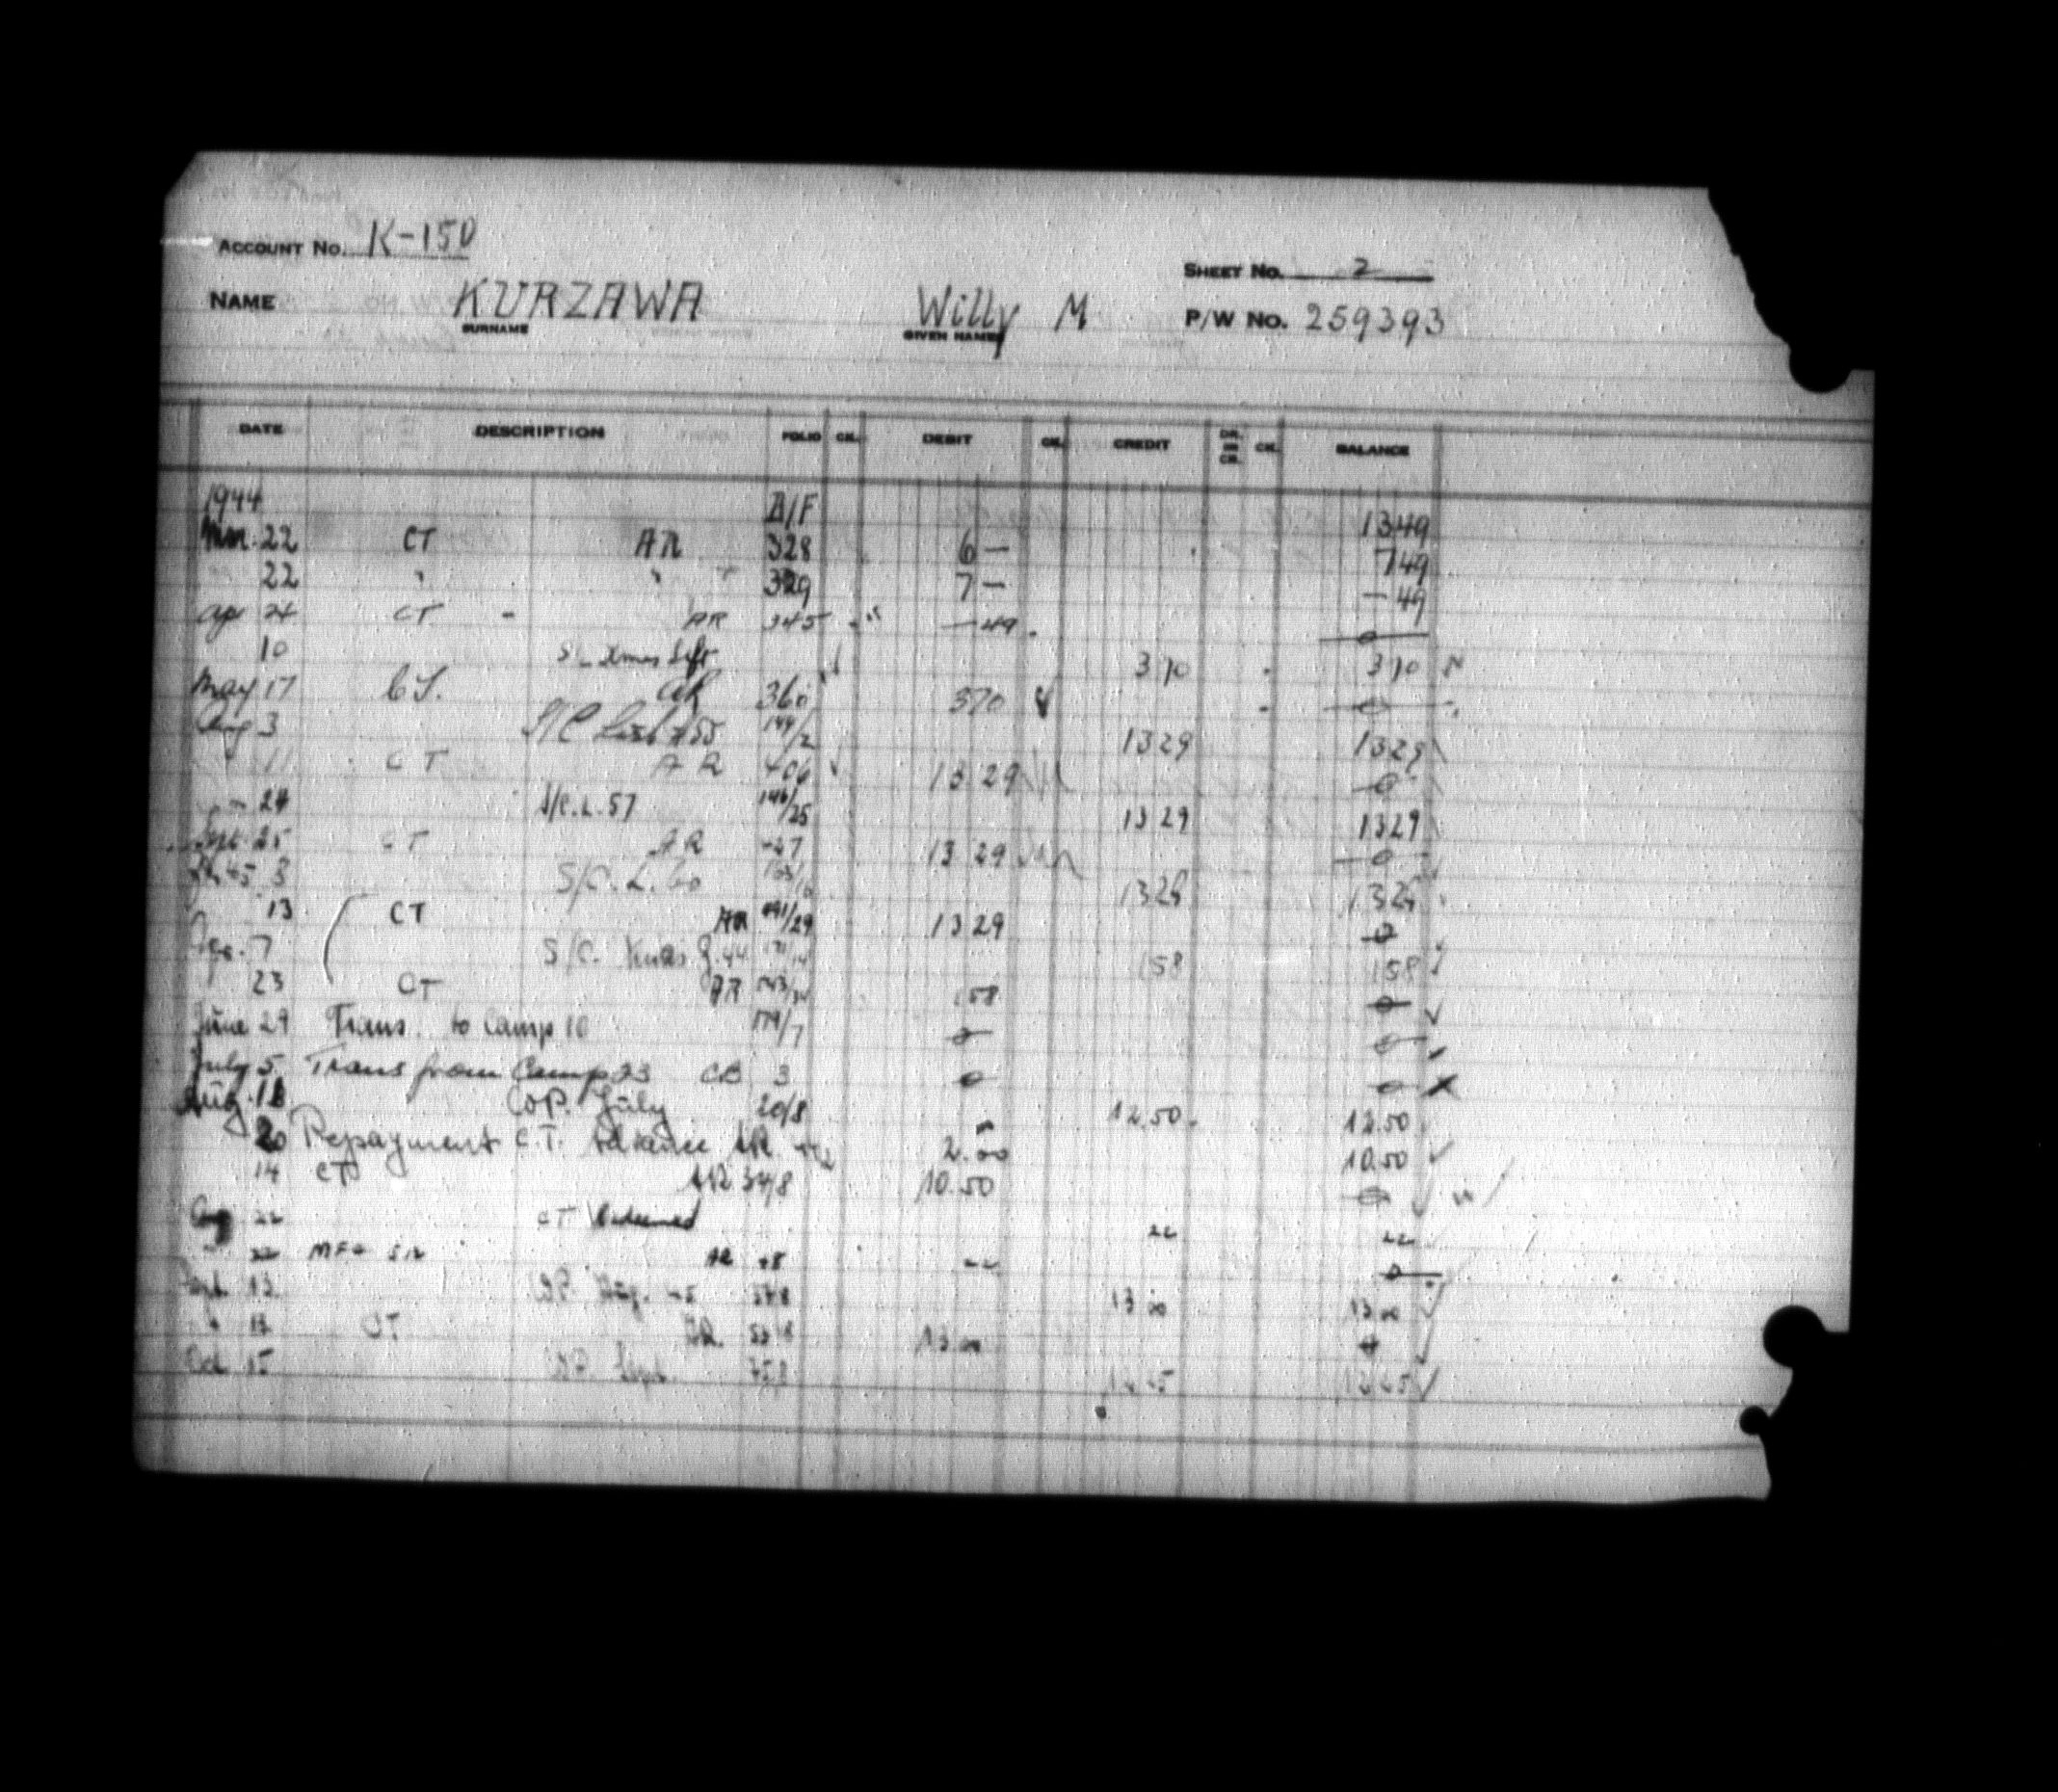 ACCOUNT NO. K-150
SHEET NO. 2
NAME KURZAWA Willy M P/W NO. 259393
SURNAME GIVEN NAMES
DATE DESCRIPTION FOLIO CK. DEBIT CK. CREDIT DR. OR CR. CK. BALANCE
1944 B/F 1349
Mar. 22 CT AR 328 6 — 749
22 " " 329 7 — — 49
Apr 24 CT - AR 345 — 49 0
10 Xmas Gift 3 70 3 70
May 17 CT. AR 360 370 0
Aug 3 144/2 1329 1329
" 11 CT AR 406 13 29 0
" 24 S/C. L. 57 146/25 1329 1329
Sept. 25 CT AR 427 13 29 0
45 8 S/C. L. 60 1329 1329
13 CT AR 191/29 1329 0
Apr. 7 S/C. Xmas g. 44 158 158
23 CT AR 158 0
June 29 Trans. to Camp 10 179/7 0 0
July 5. Trans from Camp 23 CB 3 0 0
Aug. 18 COP. July 20/8 12.50 12.50
20 Repayment C.T. Advance AR 2.00 10.50
14 CT AR 34/8 10.50 0
Aug 22 CT Redeemed 22 22
" 22 AR 0
Sept 13 Aug. 45 13 00 13 00
" 13 CT AR. 13.00 0
Oct 15 Sept.